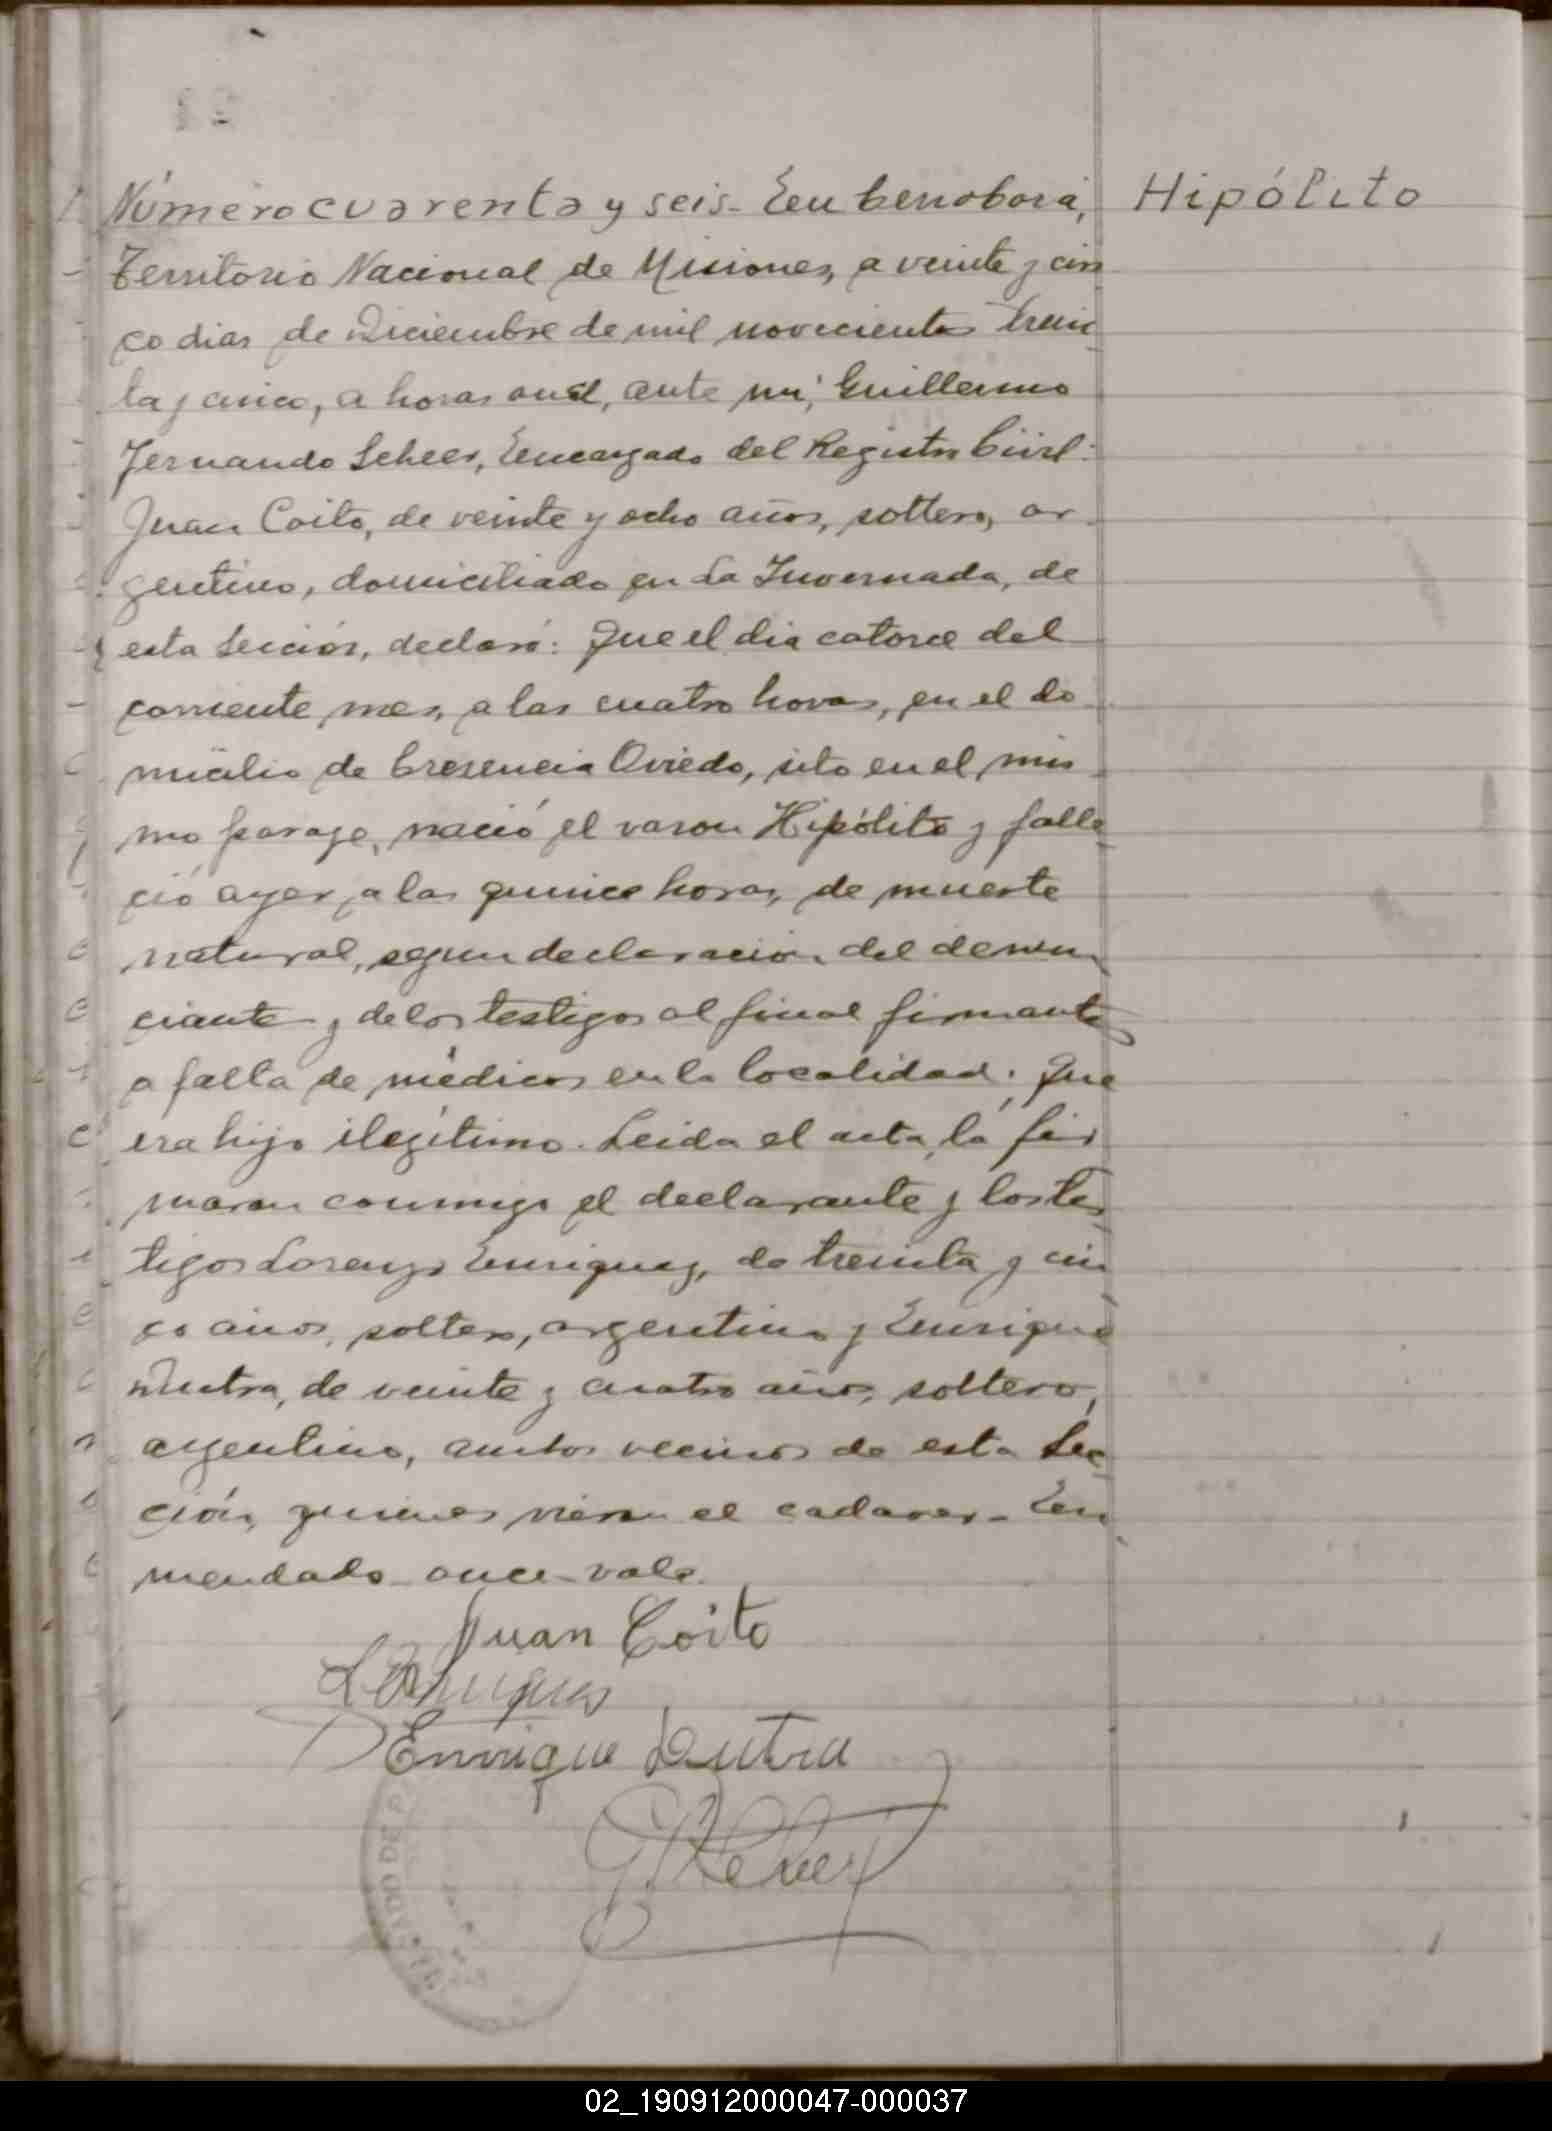 Número cuarenta y seis. En Cerro Corá,
Hipólito
Territorio Nacional de Misiones, a veinte y cin
co dias de Diciembre de mil novecientos trein
ta y cinco, a horas once, ante mi, Guillermo
Fernando Scheer, Encargado del Registro Civil:
Juan Coito, de veinte y ocho años, soltero, ar-
gentino, domiciliado en La Invernada, de
esta Sección, declaró: Que el dia catorce del
corriente mes, a las cuatro horas, en el do
micilio de Cresencia Oviedo, sito en el mis
mo paraje, nació el varon Hipólito y falle
ció ayer, a las quince horas, de muerte
natural, segun declaración del denun
ciante y de los testigos al final firmantes
a falta de médicos en la localidad. Que
era hijo ilegítimo. Leida el acta, la fir
maron conmigo el declarante y los tes
tigos Lorenzo Enriquez, de treinta y cin
co años, soltero, argentino y Enrique
Dutra, de veinte y cuatro años, soltero,
argentino, ambos vecinos de esta Sec
ción, quienes vieron el cadaver. En
mendado once vale.
Juan Coito
L Enriques
Enrique Dutra
G. Scheer
02_190912000047-000037